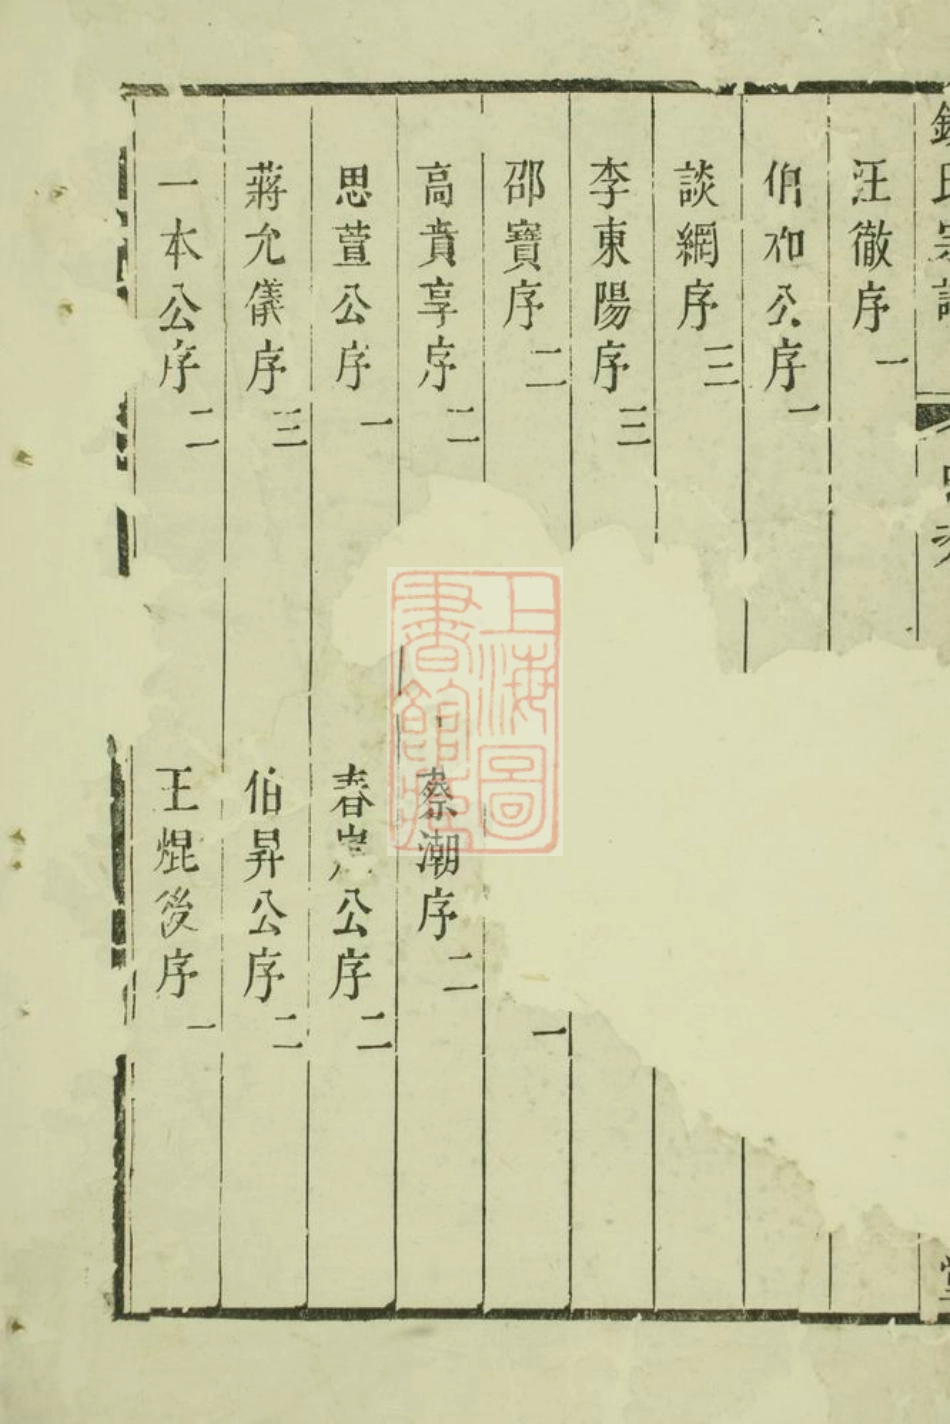 汪徹序一
伯和公序一
談綱序三
李東陽序三
邵寶序二
一
高賁亨序二
蔡潮序二
思萱公序一
春公序二
蔣允儀序三
伯昇公序二
一本公序二
王焜後序一
上海圖
書館藏